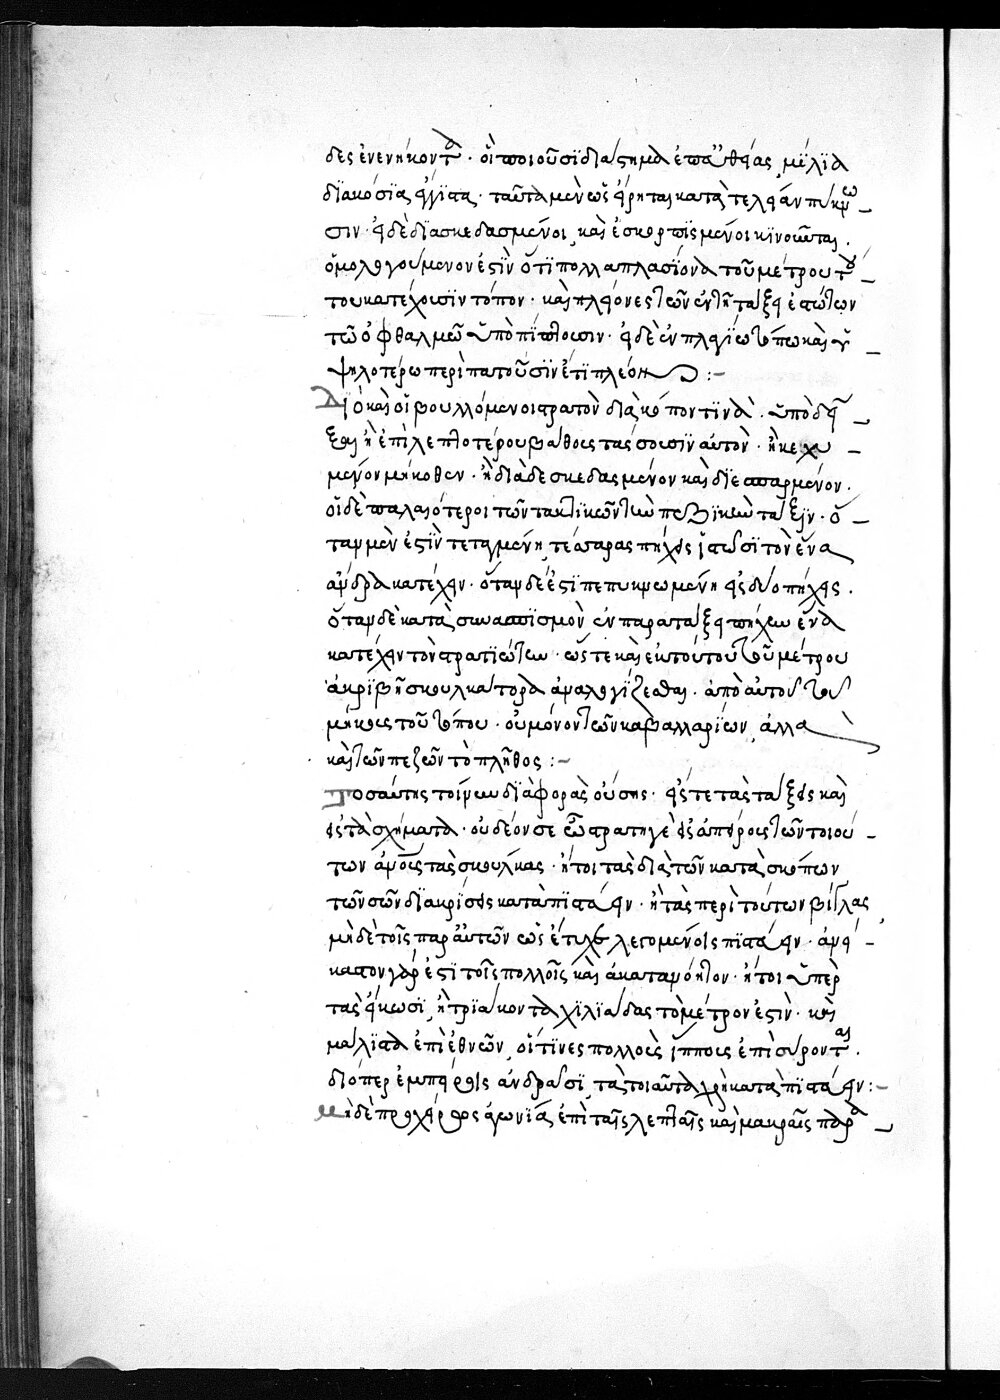 δες ἐνενήκοντα· οἳ ποιοῦσι διάστημα ἐπ' εὐθείας, μίλια
διακόσια εἴκοσι· ταῦτα μὲν ὡς εἴρηται κατὰ τελείαν πύκνω
σιν· εἰ δὲ διασκεδασμένοι, καὶ ἐσκορπισμένοι κινοῦνται.
ὁμολογούμενον ἐστὶν ὅτι πολλαπλασίονα τοῦ μέτρου τού
του κατέχουσιν τόπον· καὶ πλείονες τῶν ἐν τῇ τάξει ἑστώτων
τῶ ὀφθαλμῶ ὑποπίπτουσιν· εἰ δὲ ἐν πλαγίω τόπω καὶ ὑ
ψηλοτέρω περιπατοῦσιν ἔτι πλέον :-
Διὸ καὶ οἱ βουλόμενοι στρατὸν διὰ κόπον τινὰ. ὑποδεῖ
ξαι ἢ ἐπὶ λεπτοτέρου βάθους τάσσουσιν αὐτὸν· ἢ κεχυ
μένον μήκοθεν· ἢ διασκεδασμένον καὶ διεσπαρμένον.
οἱ δὲ παλαιότεροι τῶν τακτικῶν τὴν πεζικὴν τάξιν· ὅ
ταν μὲν ἐστὶν τεταγμένη, τέσσαρας πήχεις ἱστῶσι τὸν ἕνα
ἄνδρα κατέχειν· ὅταν δέ ἐστι πεπυκνωμένη εἰς δύο πήχεις.
ὅταν δὲ κατὰ συνασπισμὸν ἐν παρατάξει πῆχυν ἕνα
κατέχειν τὸν στρατιώτην· ὥστε καὶ ἐκ τούτου τοῦ μέτρου
ἀκριβῆ σκουλκάτορα ἀναλογίζεσθαι. ἀπὸ αὐτοῦ τοῦ
μήκους τοῦ τόπου· οὐ μόνον τῶν καβαλλαρίων, ἀλλὰ
καὶ τῶν πεζῶν τὸ πλῆθος :-
Τοσαύτης τοίνυν διαφορᾶς οὔσης· εἴς τε τὰς τάξεις καὶ
εἰς τὰ σχήματα· οὐ δέον σε ὦ στρατηγὲ εἰς ἀπείρους τῶν τοιού
των ἀνθρώπους τὰς σκούλκας· ἤτοι τὰς διὰ τῶν κατασκόπων
τῶν σῶν διακρίσεις καταπιστεύειν· ἢ τὰς περὶ τούτων βίγλας
μηδὲ τοῖς παρ' αὐτῶν ὡς ἔτυχε λεγομένοις πιστεύειν· ἀνεί
καστον γάρ ἐστι τοῖς πολλοῖς καὶ ἀκατανόητον· ἤτοι ὑπὲρ
τὰς εἴκοσι, ἢ τριάκοντα χιλιάδας τὸ μέτρον ἐστὶν· καὶ
μάλιστα ἐπὶ ἐθνῶν, οἵτινες πολλοὺς ἵππους ἐπισύρονται.
διόπερ ἐμπείροις ἀνδράσι, τὰ τοιαῦτα χρὴ καταπιστεύειν :-
Μηδὲ προχείρως ἀγωνία, ἐπὶ ταῖς λεπταῖς καὶ μακραῖς παρα